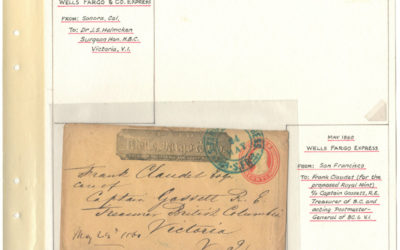 WELLS FARGO & CO. EXPRESS
FROM: Sonora, Cal.
TO: Dr J.S. Helmcken
Surgeon Hon. H.B.C.
Victoria, V.I.
MAY 1860
WELLS FARGO EXPRESS
FROM: San Francisco
TO: Frank Claudet (for the
proposed Royal Mint)
c/o Captain Gossett, R.E.
Treasurer of B.C. and
acting Postmaster-
General of BC & V.I.
Frank Claudet Esq
care of
Captain Gossett R.E.
Treasurer British Columbia
Victoria
V. I.
May 25th 1860